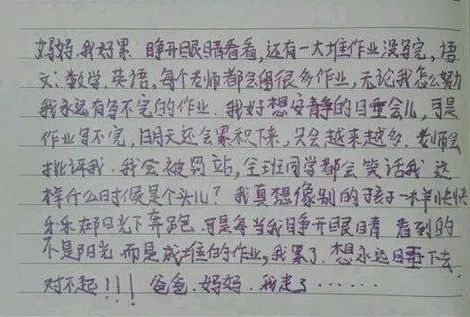 妈妈,我好累 睁开眼睛看看,还有一大堆作业没写完,语
文、数学、英语,每个老师都会留很多作业,无论我怎么努力
我永远有写不完的作业.我好想安静的睡会儿,可是
作业写不完,明天还会累积下来,只会越来越多,老师会
批评我.我会被罚站,全班同学都会笑话我 这
样什么时候是个头儿?我真想像别的孩子一样快快
乐乐在阳光下奔跑 可是每当我睁开眼睛 看到的
不是阳光 而是成堆的作业,我累了.想永远睡下去.
对不起!!!爸爸.妈妈.我走了……